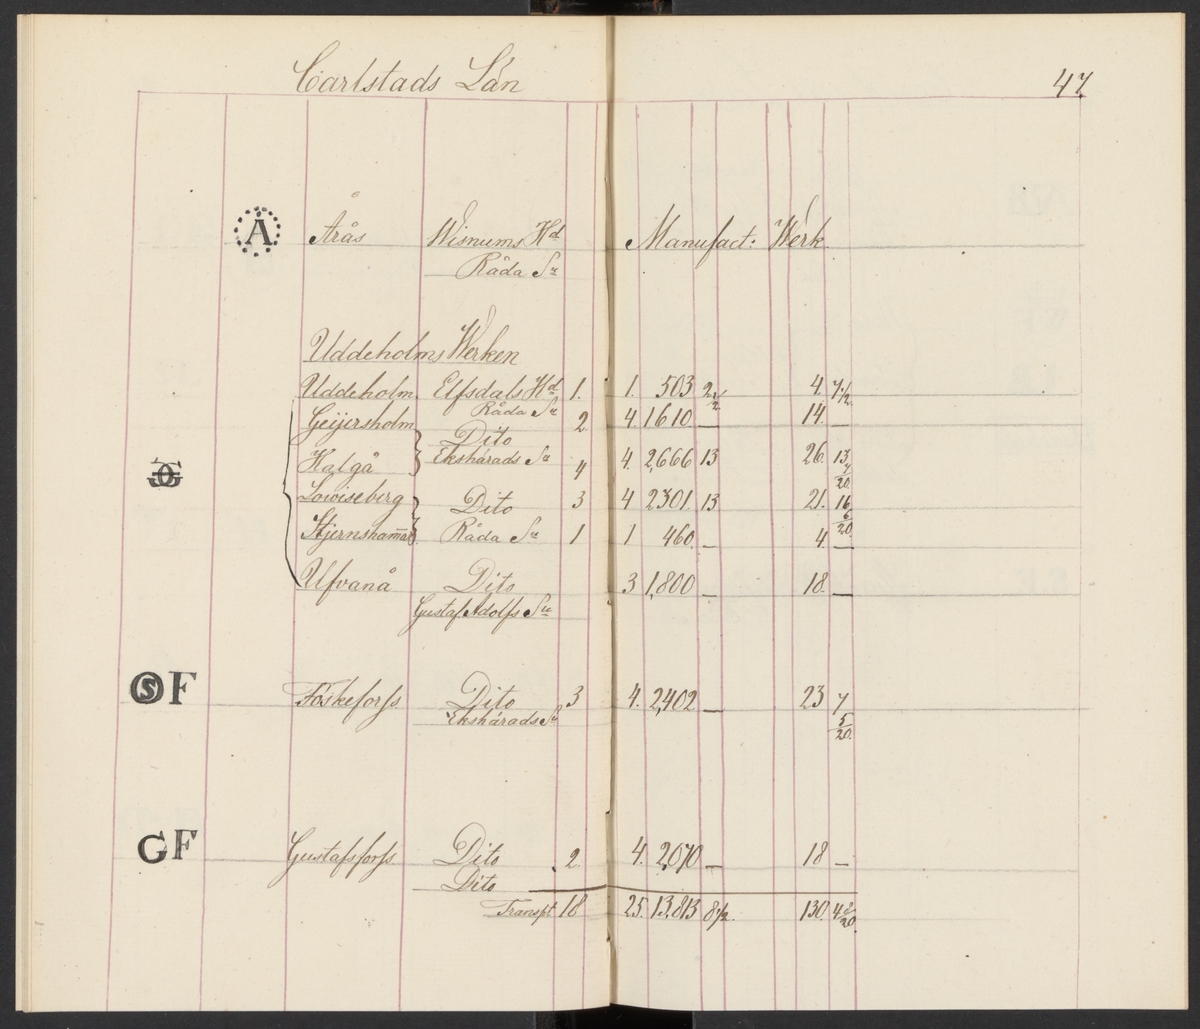 Carlstads Län 47
Å Årås Wisnums Hd Manufact: Werk
Råda Sn
Uddeholms Werken
Uddeholm Elfsdals Hd 1. 1. 503 2 1/2 4. 7 1/2
Råda Sn
Geijersholm Dito 2 4 1610 — 14. —
Halgå Ekshärads Sn 4 4. 2,666 13 26. 13 7/20
Lowiseberg Dito 3 4 2301. 13 21. 16 6/20
Stjernshamar Råda Sn 1 1 460. — 4. —
Ufvanå Dito 3 1,800 — 18. —
Gustaf Adolfs Sn
S F Föskeforss Dito 3 4. 2,402 — 23 7 5/20
Ekshärads Sn
GF Gustafsforss Dito 2 4. 2,070 — 18 —
Dito
Transpt 16 25. 13,813 8 1/2 130. 4 8/20